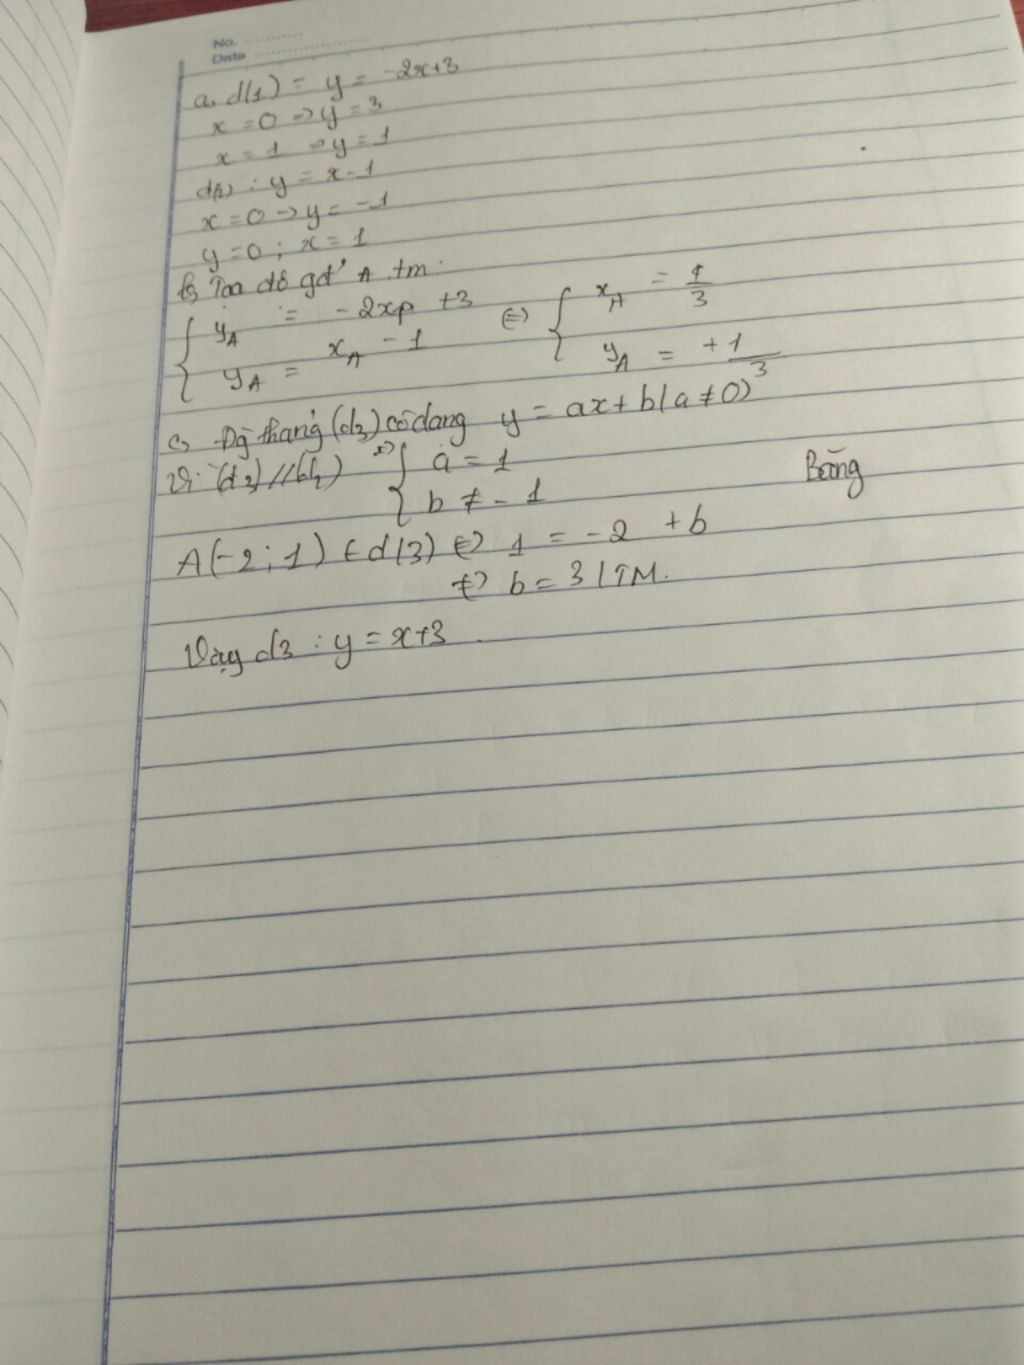 No. ............
Date ....................
a, d(1) = y = -2x+3
x = 0 => y = 3
x = 1 => y = 1
d(2) : y = x - 1
x = 0 -> y = -1
y = 0 ; x = 1
b, Toạ độ gđ' A tm :
{ yA = -2xA + 3 <=> { xA = 4/3
{ yA = xA - 1 { yA = +1/3
c, Đg thẳng (d3) có dạng y = ax + b (a ≠ 0)
Vì (d3) // (d2) => { a = 1
{ b ≠ - 1
Bằng
A(-2 ; 1) ∈ d(3) <=> 1 = -2 + b
<=> b = 3 (TM.
Vậy d3 : y = x+3